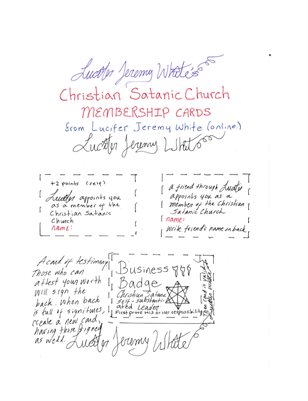 Lucifer Jeremy White's
Christian Satanic Church
MEMBERSHIP CARDS
from Lucifer Jeremy White (online)
Lucifer Jeremy White
+2 points (rely)
Lucifer appoints you
as a member of the
Christian Satanic
Church
name:
A friend through Lucifer
appoints you as a
member of the Christian
Satanic Church.
name:
Write friend's name on back.
A card of testimony
Those who can
attest your worth
will sign the
back. When back
is full of signitures,
create a new card,
having those signed
as well.
Business
Badge
Christian Satanic
self-substanti
ated Leader
First print this under responsibility
This card is valid
Lucifer White
Lucifer Jeremy White